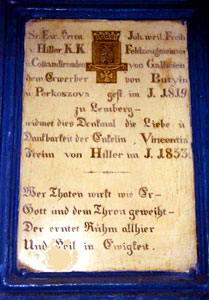 Sr. Exc. Herrn Joh. weil. Freih
v. Hiller K.K. Feldzeugmeister
u. Comandirenden von Galizien
dem Erwerber von Butyin
u. Perkoszova gest im J. 1819
zu Lemberg —
widmet dies Denkmal die Liebe u
Dankbarkeit der Enkelin Vincentia
Freiin von Hiller im J. 1853.
Wer Thaten wirkt wie Er —
Gott und dem Thron geweiht —
Der erntet Ruhm allhier
Und Heil in Ewigkeit.